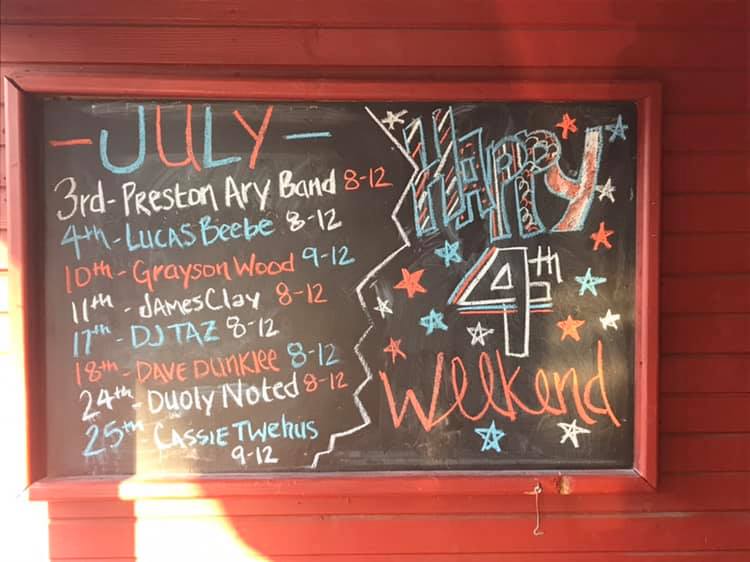 - JULY -
3rd- Preston Ary Band 8-12
4th - Lucas Beebe 8-12
10th - Grayson Wood 9-12
11th - James Clay 8-12
17th - DJ TAZ 8-12
18th - Dave Dunklee 8-12
24th - Duoly Noted 8-12
25th - Cassie Twehus
9-12
HAPPY
4th
Weekend